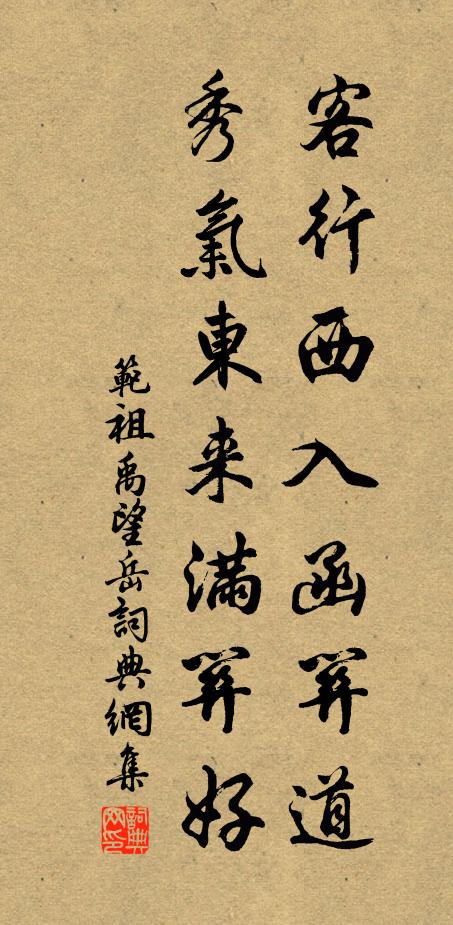 客行西入函關道
秀氣東来滿關好
範祖禹望岳詞典網集
詞典網印